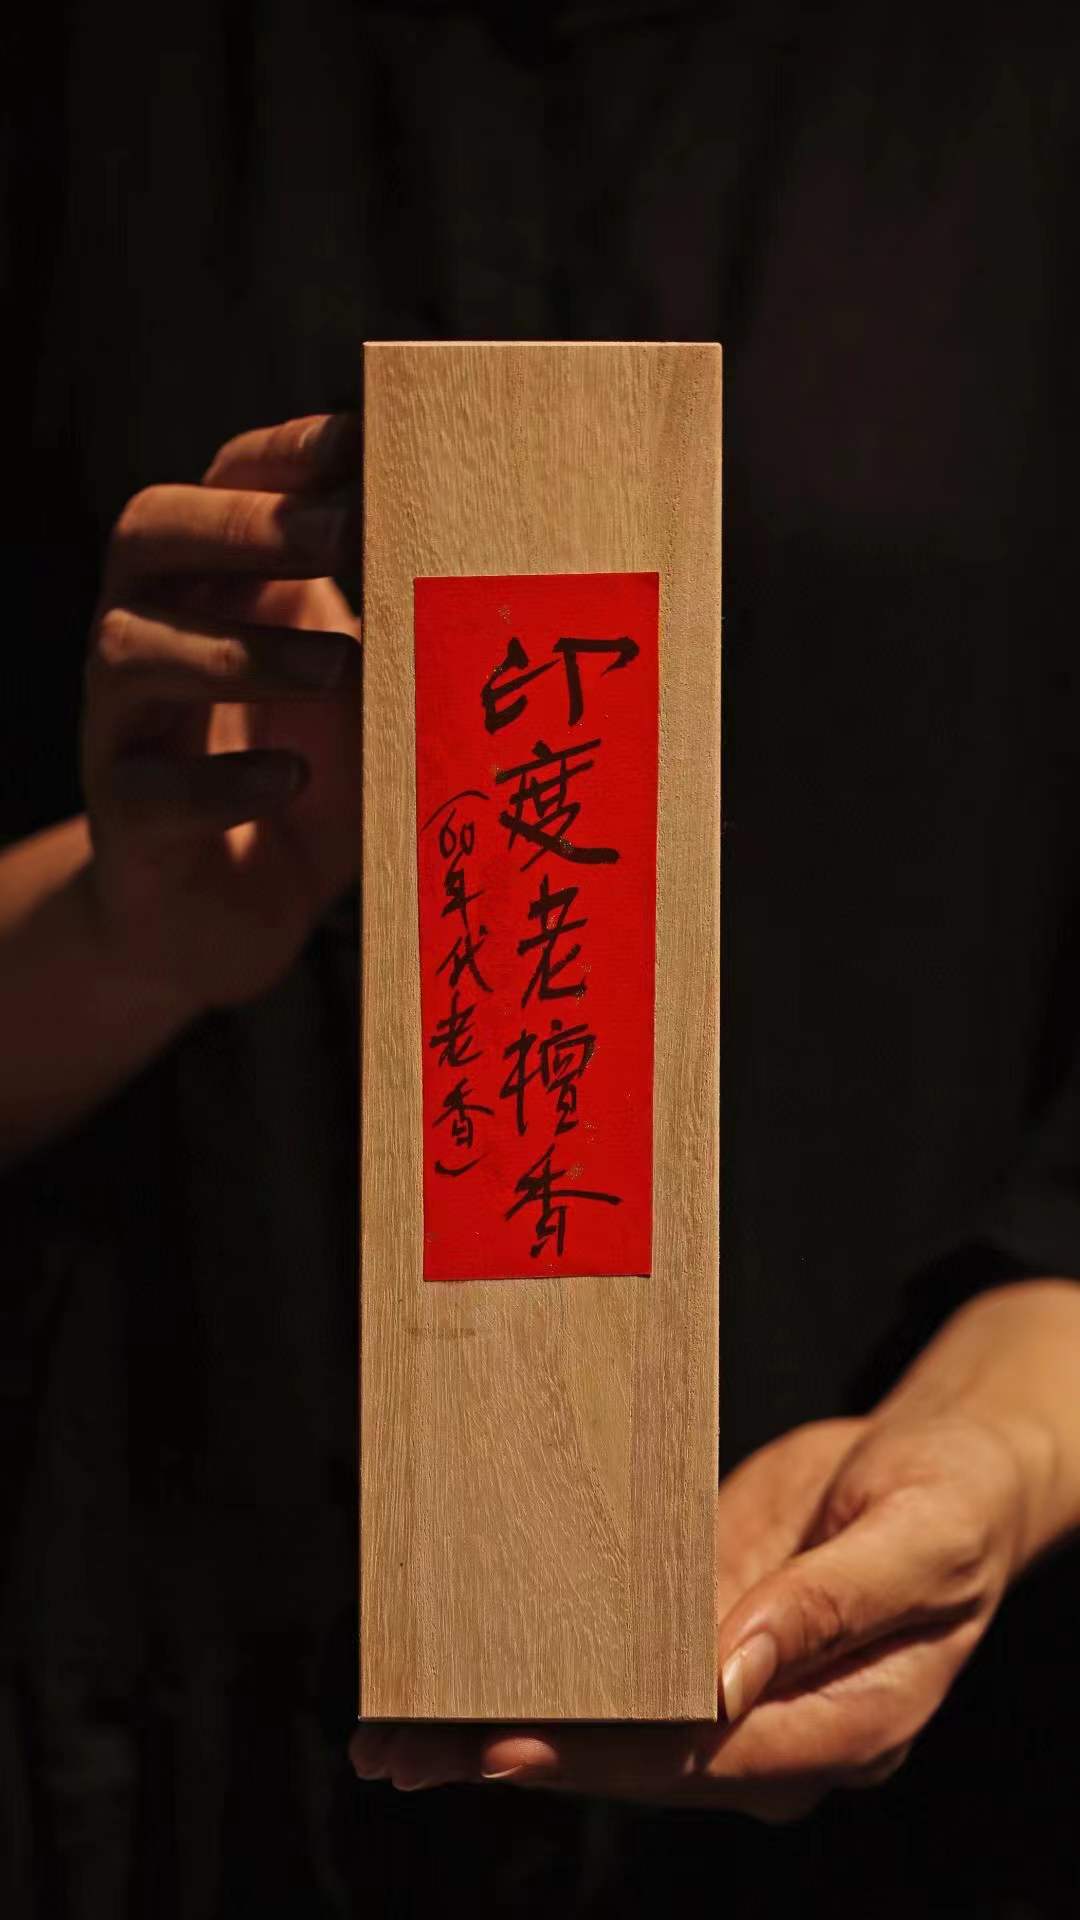 印度老檀香
（60年代老香）